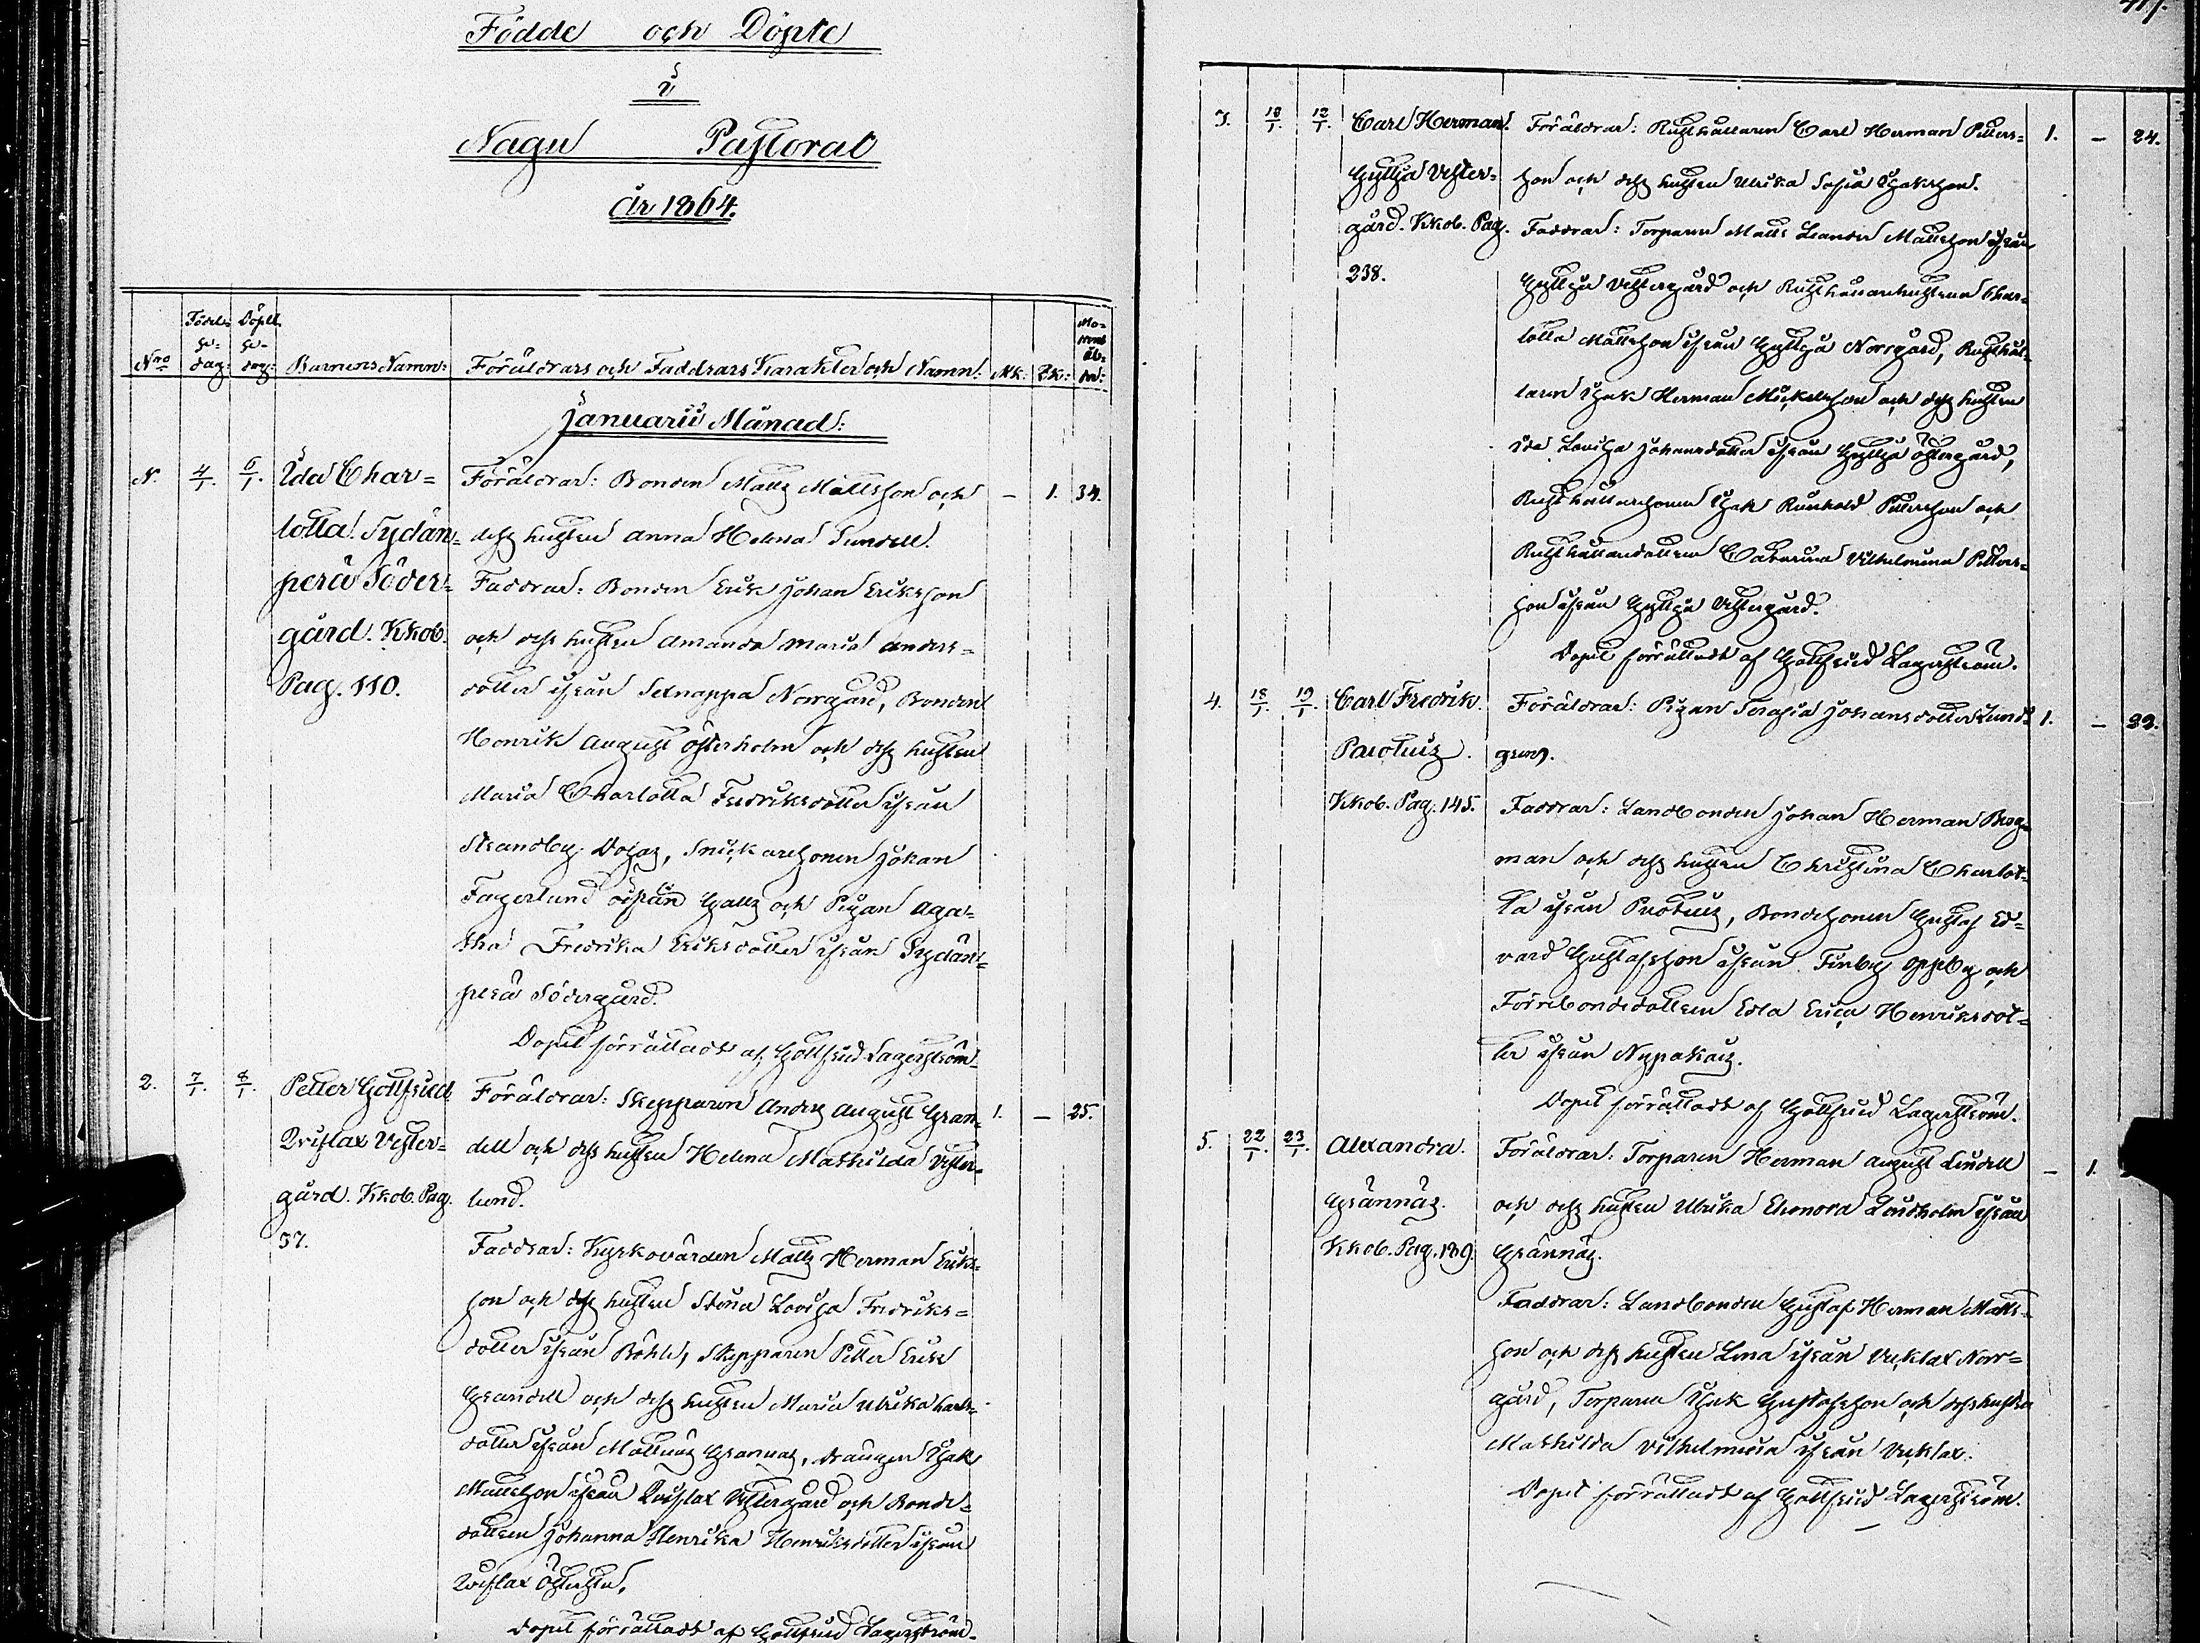 Födde och Döpte
i
Nagu Pastorat
år 1864.
Nro
Födel-
se-
dag:
Döpel-
se-
dag:
Barnens Namn:
Föräldrars och Faddrars Karakter och Namn:
Mk:
Qk:
Mo-
drens
ål-
der:
Januarii Månad:
N. 4/1. 6/1.
Ida Char=
lotta. Sydän=
perä Söder=
gård. Kkob.
Pag. 110.
Föräldrar: Bonden Matts Mattsson och
dess hustru Anna Helena Sundell.
Faddrar: Bonden Erik Johan Eriksson
och dess hustru Amanda Maria Anders=
dotter ifrån Sexnappa Norrgård, Bonden
Henrik August Österholm och dess hustru
Maria Charlotta Fredriksdotter ifrån
Strandby, Snickaresonen Johan
Fagerlund ifrån Galts och Pigan Aga=
tha Fredrika Eriksdotter ifrån Sydän=
perä Södergård.
Dopet förrättadt af Gottfrid Lagerström.
– 1. 34.
2. 7/1. 8/1.
Petter Gottfrid.
Qvislax Vester=
gård. Kkob. Pag.
37.
Föräldrar: Skepparen Anders August Gran=
dell och dess hustru Helena Mathilda Vester=
lund.
Faddrar: Kyrkovärden Matts Herman Eriks=
son och dess hustru Stina Lovisa Fredriks=
dotter ifrån Böhle, Skepparen Petter Erik
Grandell och dess hustru Maria Ulrika Carls=
dotter ifrån Mattnäs Grannas, drängen Isak
Mattsson ifrån Qvislax Vestergård och Bonde=
dottren Johanna Henrika Henriksdotter ifrån
Qvislax
Dopet förrättadt af Gottfrid Lagerström.
1. – 25.
3. 10/1. 12/1.
Carl Herman.
Gyttja Vester=
gård. Kkob. Pag.
238.
Föräldrar: Rusthållaren Carl Herman Petters=
son och dess hustru Ulrika Sofia Isaksson.
Faddrar: Torparen Matts Leander Mattsson ifrån
Gyttja Vestergård och Rusthållarehustrun Char=
lotta Mattsson ifrån Gyttja Norrgård, Rusthål=
laren Isak Herman Mickelsson och dess hustru
Ida Lovisa Johansdotter ifrån Gyttja Östergård,
Rusthållaresonen Isak Reinhold Pettersson och
Rusthållaredottren Catarina Vilhelmina Petters=
son ifrån Gyttja Vestergård.
Dopet förrättadt af Gottfrid Lagerström.
1. – 24.
4. 18/1. 19/1.
Carl Fredrik.
Kkob. Pag. 145.
Föräldrar: Pigan Serafia Johansdotter Lund=
gren.
Faddrar: Landbonden Johan Herman Berg=
man och dess hustru Christina Charlot=
ta ifrån Bondesonen Gustaf Ed=
vard Gustafsson ifrån Finby Oppby och
Förrebondedottren Edla Erica Henriksdot=
ter ifrån
Dopet förrättadt af Gottfrid Lagerström.
1. – 22.
5. 22/1. 23/1.
Alexandra.
Grännäs.
Kkob. Pag. 189.
Föräldrar: Torparen Herman August Lindell
och dess hustru Ulrika Elionora Lindholm ifrån
Grännäs.
Faddrar: Landbonden Gustaf Herman Matts=
son och dess hustru Lena ifrån Vicklax Norr=
gård, Torparen Isak Gustafsson och dess hustru
Mathilda Vilhelmina ifrån Vicklax.
Dopet förrättadt af Gottfrid Lagerström.
– 1.